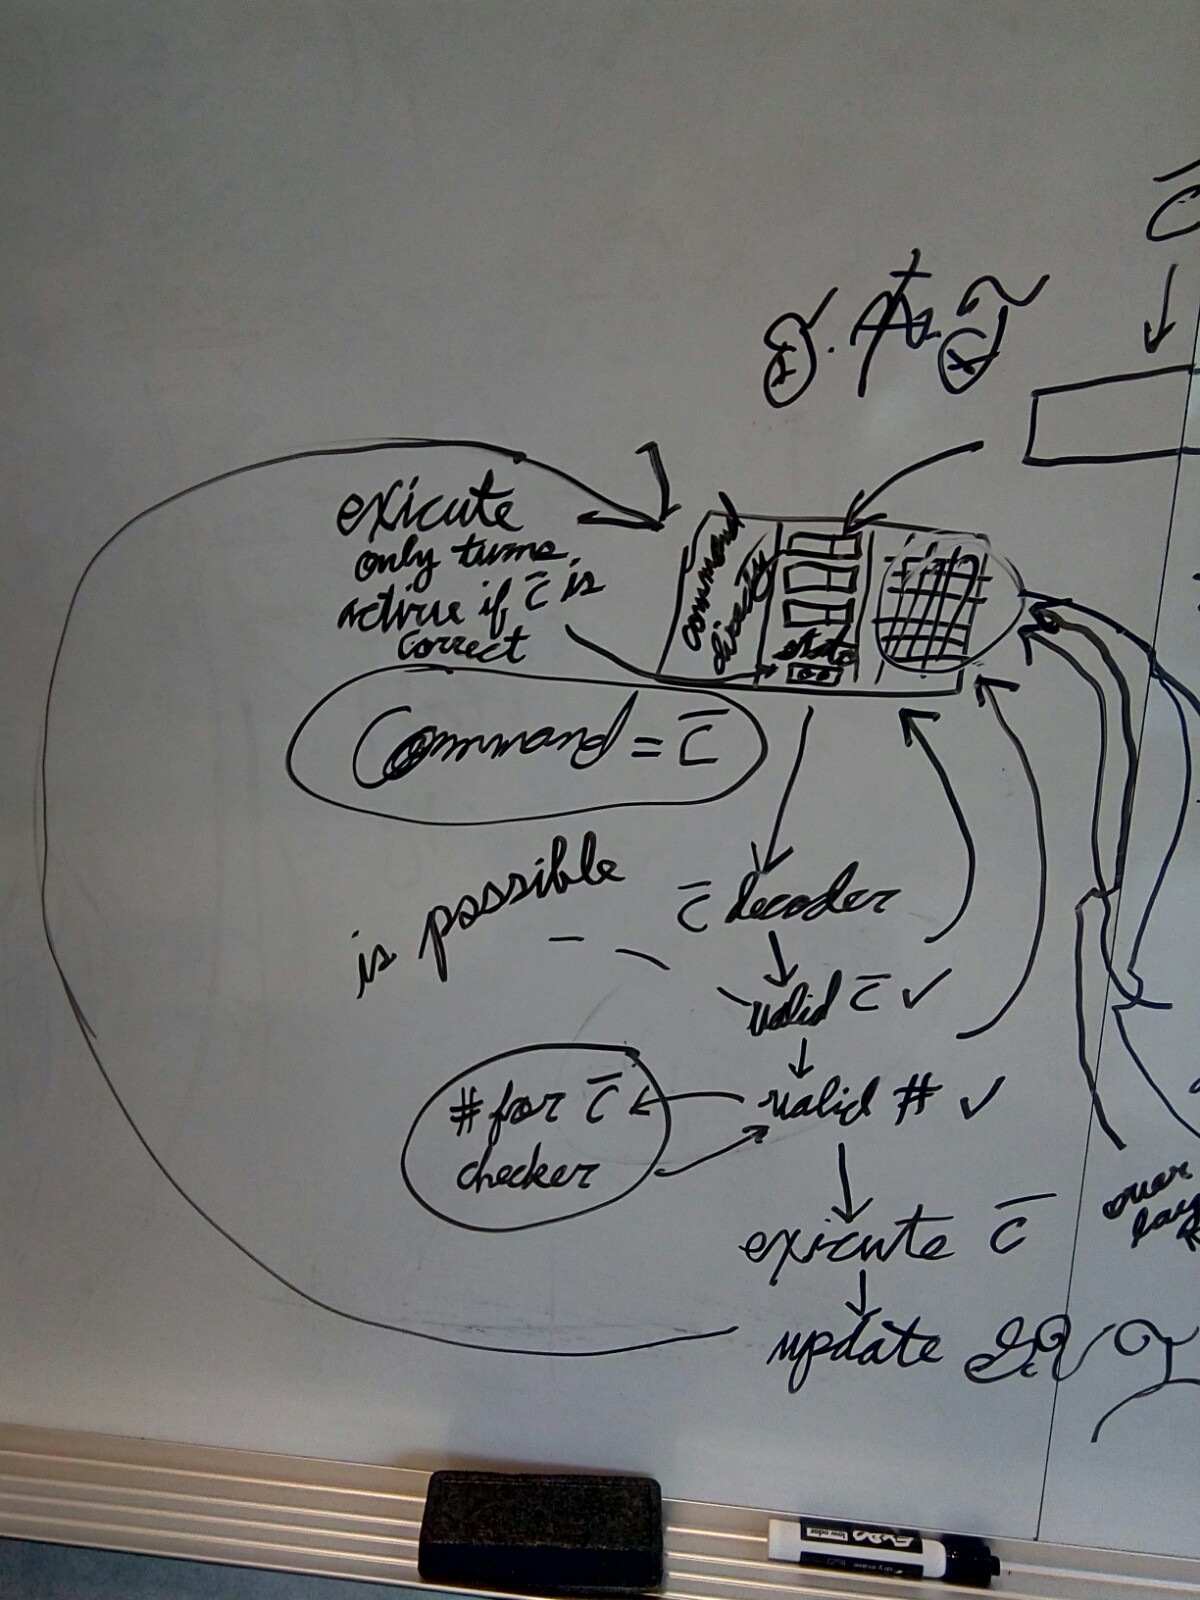 c̄
exicute
only turns
active if c̄ is
correct
command
Command = c̄
is possible
c̄ decoder
valid c̄ ✓
valid # ✓
# for c̄
checker
exicute c̄
update
over
EXPO
low odor